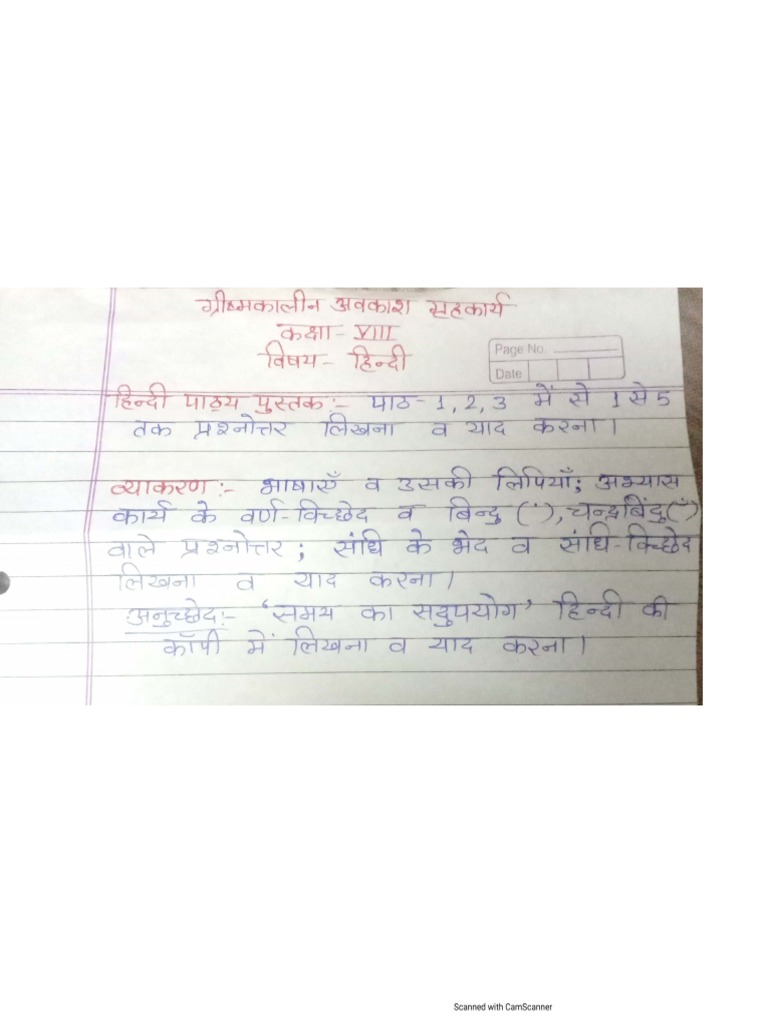 ग्रीष्मकालीन अवकाश सहकार्य
कक्षा - VIII
विषय - हिन्दी
Page No.
Date
हिन्दी पाठ्य पुस्तक :- पाठ - 1, 2, 3 में से 1 से 5
तक प्रश्नोत्तर लिखना व याद करना।
व्याकरण :- भाषाएँ व उसकी लिपियाँ; अभ्यास
कार्य के वर्ण-विच्छेद व बिन्दु (ं), चन्द्रबिंदु (ँ)
वाले प्रश्नोत्तर ; संधि के भेद व संधि-विच्छेद
लिखना व याद करना।
अनुच्छेद :- 'समय का सदुपयोग' हिन्दी की
कॉपी में लिखना व याद करना।
Scanned with CamScanner